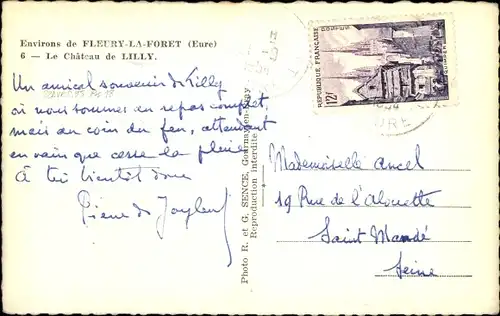 Environs de FLEURY-LA-FORET (Eure)
6 — Le Château de LILLY.
Un amical souvenir de Lilly
où nous sommes en repos complet,
mais au coin du feu, attendant
en vain que cesse la pluie
À toi bientôt donc
Pierre de
Photo R. et G. SENCE, Gournay-en-Bray
Reproduction interdite
REPUBLIQUE FRANÇAISE
POSTES
12F
EURE
Mademoiselle Ancel
19 Rue de l'Alouette
Saint Mandé
Seine